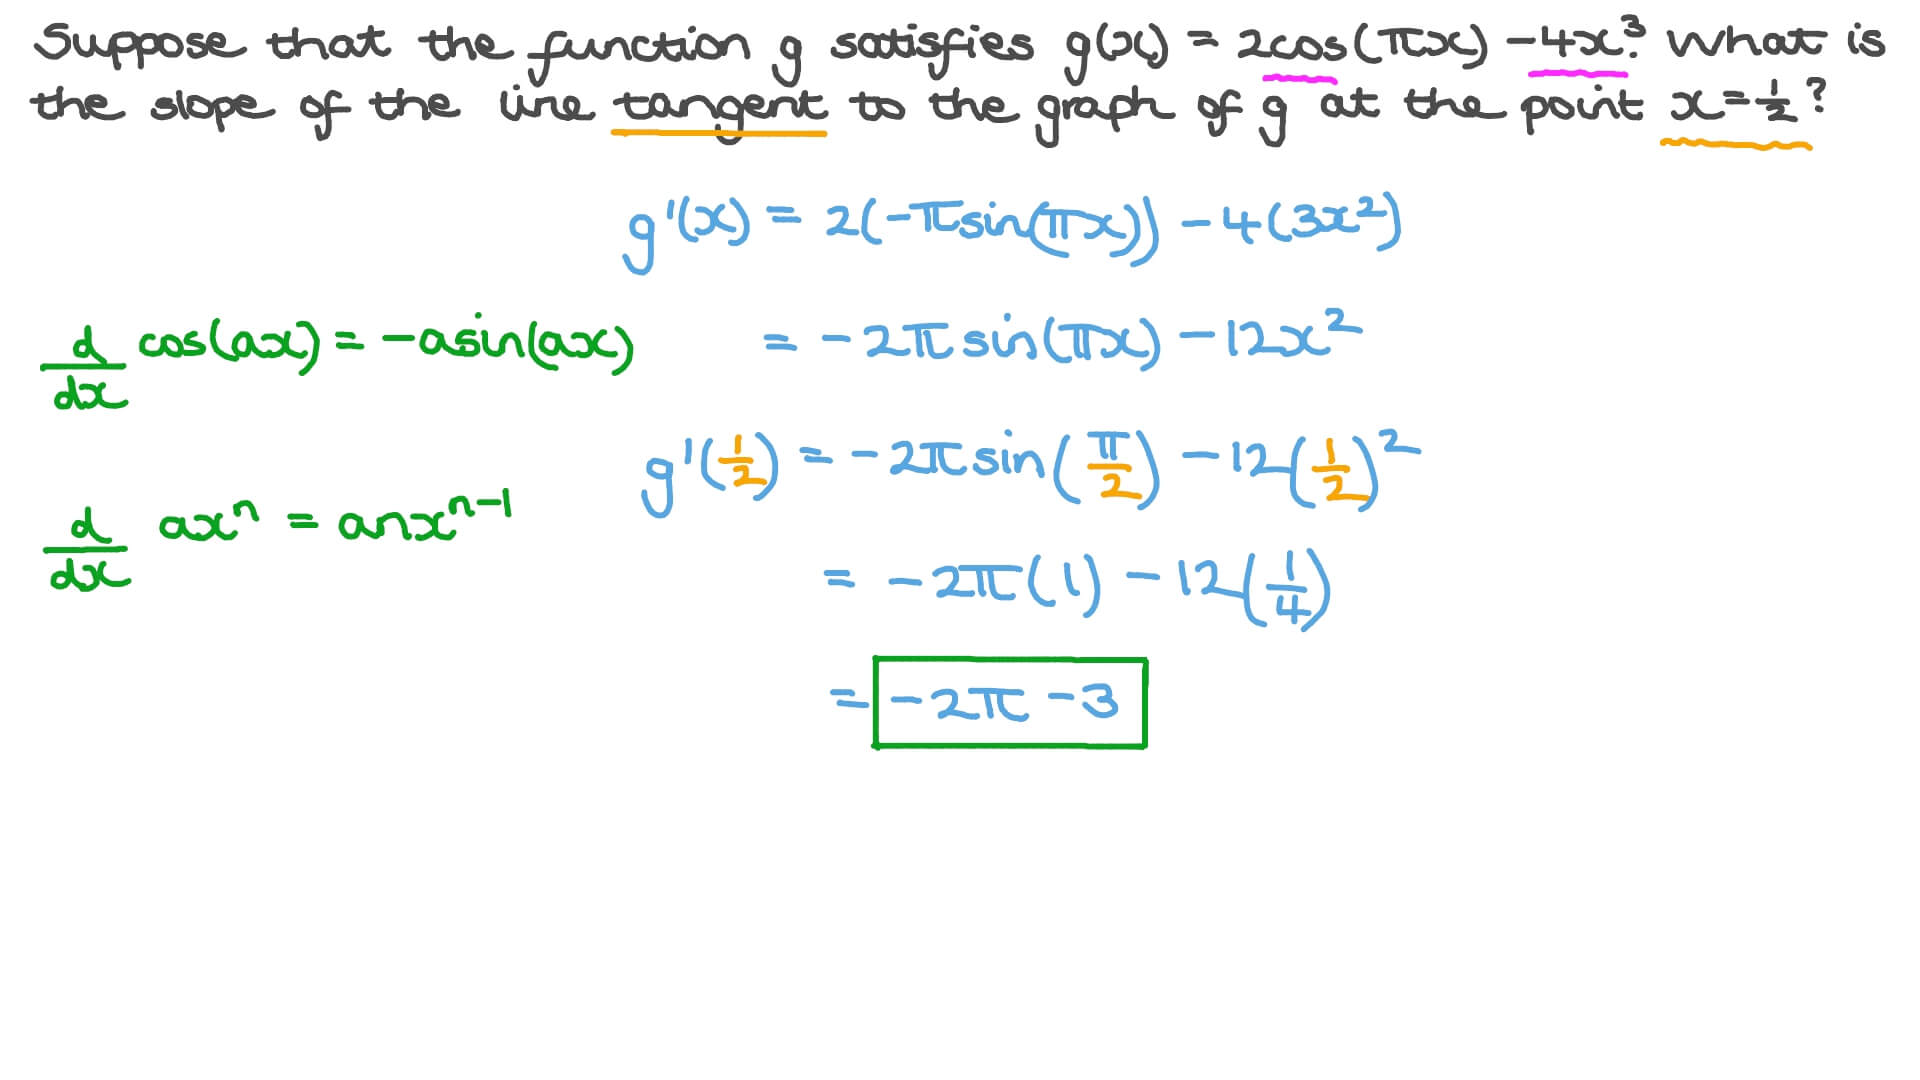 Suppose that the function g satisfies g(x) = 2cos(πx) - 4x³. What is
the slope of the line tangent to the graph of g at the point x = 1/2?
g'(x) = 2(-πsin(πx)) - 4(3x²)
d/dx cos(ax) = -asin(ax)
= -2πsin(πx) - 12x²
g'(1/2) = -2πsin(π/2) - 12(1/2)²
d/dx axⁿ = anxⁿ⁻¹
= -2π(1) - 12(1/4)
= -2π - 3